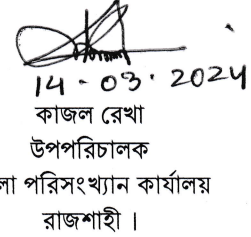 14-03-2024
কাজল রেখা
উপপরিচালক
লা পরিসংখ্যান কার্যালয়
রাজশাহী ।